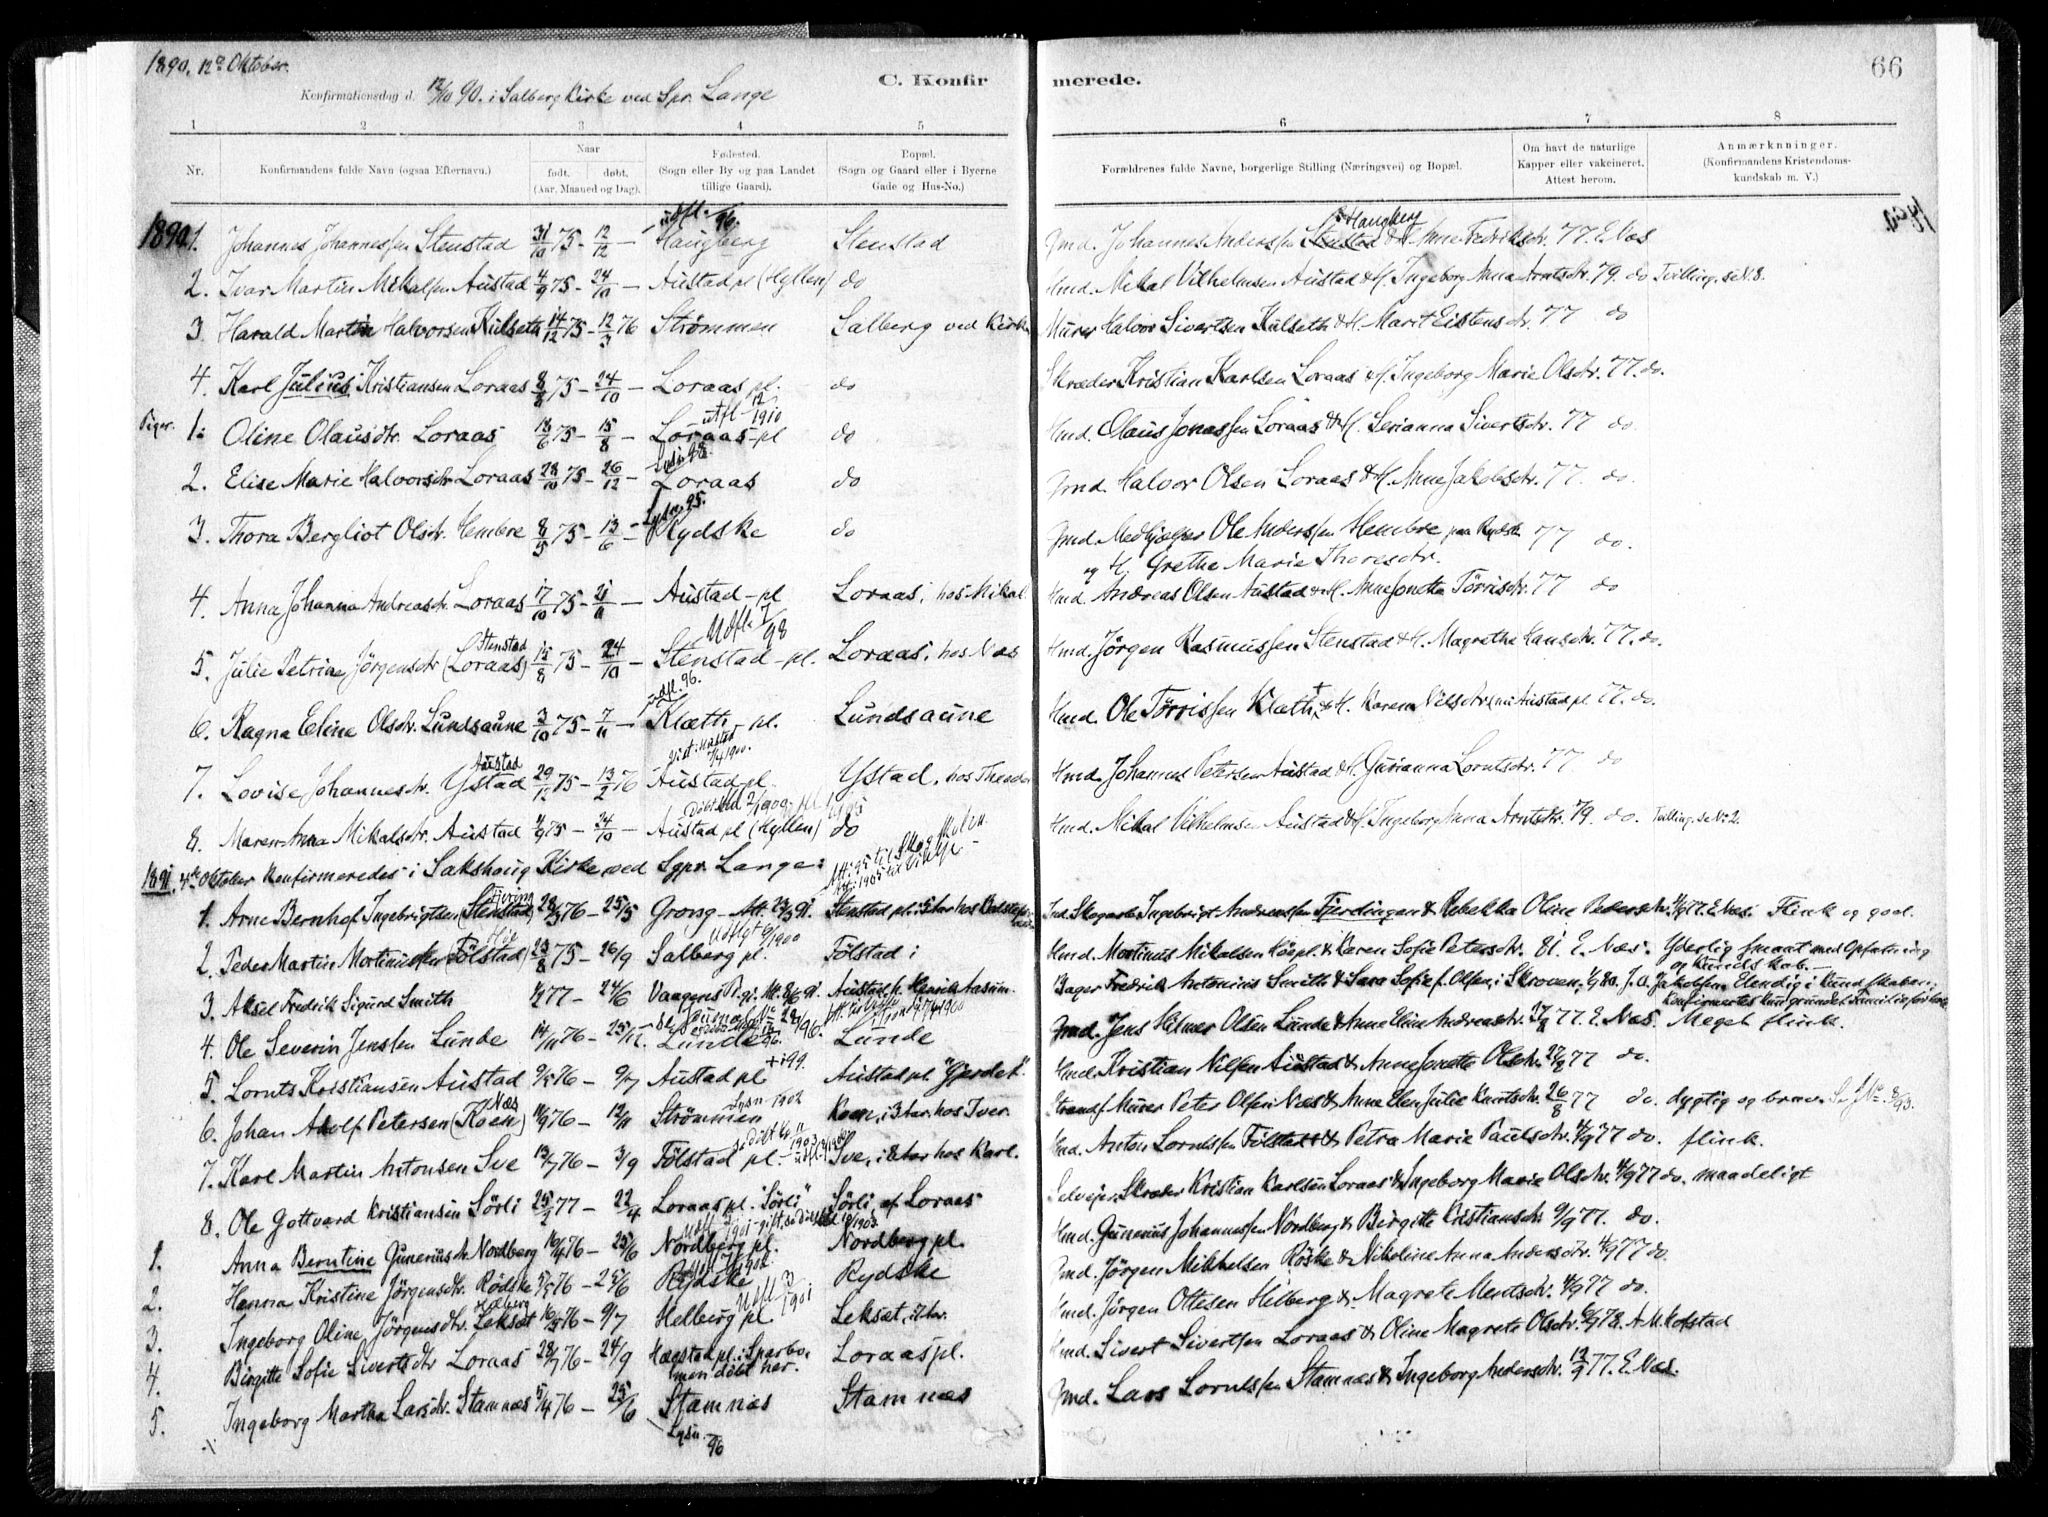 1890. 12te Oktober.
C. Konfirmerede.
66
Konfirmationsdag d. 12/10 90. i Salberg Kirke ved Spr. Lange
1 2 3 4 5 6 7 8
Nr.
Konfirmandens fulde Navn (ogsaa Efternavn.)
Naar
født. døbt.
(Aar, Maaned og Dag).
Fødested.
(Sogn eller By og paa Landet
tillige Gaard).
Bopæl.
(Sogn og Gaard eller i Byerne
Gade og Hus-No.)
Forældrenes fulde Navne, borgerlige Stilling (Næringsvei) og Bopæl.
Om havt de naturlige
Kopper eller vakcineret.
Attest herom.
Anmærkninger.
(Konfirmandens Kristendoms-
kundskab m. V.)
1890. 1. Johannes Johannessen Stenstad 31/10 75 - 12/12 — Haugberg Stenstad Gmd. Johannes Anderssen Stenstad & H. Anne Fredriksdr. 77. E. Næs
udfl. 96.
Haugberg
2. Ivar Martin Mikalsen Austad 4/9 75 - 24/10 — Austad pl (Hyllen) do Hmd. Mikal Vilhelmsen Austad & H. Ingeborg Anna Arntsdr. 79. do Tvilling, se N. 8.
3. Harald Martin Halvorsen Kulseth 14/12 75 - 12/3 76 Strømmen Salberg ved Kirken Murer Halvor Sivertsen Kulseth & H. Marit Eistensdr. 77 do
4. Karl Julius Kristiansen Loraas 8/8 75 - 24/10 — Loraas pl. do Skræder Kristian Karlsen Loraas & H. Ingeborg Marie Olsdr. 77. do.
Piger. 1. Oline Olausdr. Loraas 18/6 75 - 15/8 — Loraas-pl do Hmd. Olaus Jonassen Loraas & H. Serianna Sivertsdr. 77 do.
utfl 12/1910
2. Elise Marie Halvorsdr Loraas 28/10 75 - 26/12 — Loraas do Gmd. Halvor Olsen Loraas & H. Anne Jakobsdr. 77. do.
Lysn. 98.
3. Thora Bergliot Olsdr. Hembre 8/5 75 - 13/6 — Rydske do Gmd. Medhjelper Ole Anderssen Hembre paa Rydske 77 do.
Lysn. 95.
og H. Grethe Marie Thoresdr.
4. Anna Johanna Andreasdr. Loraas 17/10 75 - 21/11 — Austad-pl Loraas, hos Mikal Hmd. Andreas Olsen Austad & H. Anne Jonetta Törrisdr. 77 do
5. Julie Petrine Jörgensdr (Loraas) 15/8 75 - 24/10 — Stenstad-pl. Loraas, hos Næs Hmd. Jörgen Rasmussen Stenstad & H. Magretha Hansdr. 77. do.
Stenstad
Udfl. 7/98
6. Ragna Eline Olsdr. Lundsaune 3/10 75 - 7/11 — Klæth-pl. Lundsaune Hmd. Ole Törrissen Klæth & H. Karen Nilsdr. (nu Austad pl. 77. do.
udfl. 96.
7. Lovise Johannesdr. Ystad 29/12 75 - 13/2 76 Austad pl. Ystad, hos Theodor Hmd. Johannes Petersen Austad & H. Gurianna Lorntsdr. 77 do
Austad
8. Maren Anna Mikalsdr. Austad 4/9 75 - 24/10 — Austad pl (Hyllen) do Hmd. Mikal Vilhelmsen Austad & H. Ingeborg Anna Arntsdr. 79. do. Tvilling. se No 2.
1891. 4de Oktober Konfirmerede i Sakshaug Kirke ved Sgpr. Lange:
1. Arne Bernhof Ingebrigtsen (Stenstad) 28/3 76 - 25/5 Grong - Att. 23/3 91. Stenstad pl. Ind. Skogarb. Ingebrigt Andreassen Fjerdingen & Rebekka Oline Pedersdr. 77. E. Næs. Flink og god.
2. Peder Martin Mortinussen (Fölstad) 23/8 75 - 26/9 Salberg pl. Fölstad i Hmd. Mortinus Mikalsen Höe pl. & Karen Sofie Petersdr. 81. E. Næs. Yderlig smaat med Opfatning
Udflyt 9/1900
og Kundskab.
3. Aksel Fredrik Sigurd Smith 1/2 77 - 24/6 Vaagens Pr.gj. Austad, h. Henrik Aasum. Bager Fredrik Antonius Smith & Sara Sofie f. Olsen, i Skroven, J. O. Jakobsen Elendig i Kundskaber.
4. Ole Severin Jenssen Lunde 14/11 76 - 25/12. Lunde Lunde Gmd. Jens Hilmer Olsen Lunde & Anne Eline Andreasdr. 77. E. Næs. Meget flink.
5. Lornts Kristiansen Austad 9/5 76 - 9/7 Austad pl. Austad pl. "Gjerdet". Hmd. Kristian Nilsen Austad & Anne Jonette Olsdr. 27/8 77 do.
6. Johan Adolf Petersen (Koen) 11/9 76 - 12/11 Strömmen Koen, i 3 Aar hos Iver. Strands. Murer Peter Olsen Næs & Anne Elen Julie Knutsdr. 26/8 77 do. dygtig og brav.
Næs
Lysn 1902
7. Karl Martin Antonsen Sve 13/7 76 - 3/9 Fölstad pl. Sve, i 8 Aar hos Karl. Hmd. Anton Lorntssen Fölstad & Petra Marie Paulsdr. 4/9 77 do. flink.
8. Ole Gottvard Kristiansen Sörli 25/2 77 - 22/4 Loraas pl. "Sörli" Sörli, af Loraas Selveier, Skræder Kristian Karlsen Loraas & Ingeborg Marie Olsdr. 4/9 77 do. maadeligt
1. Anna Berntine Gunerius dr. Nordberg 16/4 76 - 25/6 Nordberg pl. Nordberg pl. Hmd. Gunerius Johannessen Nordberg & Birgitte Kristiansdr. 9/9 77. do.
2. Hanna Kristine Jörgensdr. Rödske 5/5 76 - 25/6 Rydske Rydske Gmd. Jörgen Mikkelsen Röske & Nikoline Anna Andersdr. 4/9 77 do.
3. Ingeborg Oline Jörgensdtr. Leksæt 16/5 76 - 9/7 Helberg pl Leksæt, 7 Aar. Hmd. Jörgen Ottesen Hilberg & Magrete Mentsdr. 4/9 77 do.
Helberg
Udfl 3/1901
4. Birgitte Sofie Sivertsdtr Loraas 28/7 76 - 24/9 Hægstad pl. i Sparbo, Loraas pl. Hmd. Sivert Sivertsen Loraas & Oline Magrete Olsdr. 78. A. M. Kofstad
men döbt her.
5. Ingeborg Martha Larsdr. Stamnæs 5/4 76 - 25/6 Stamnæs Stamnæs Gmd. Lars Lorntssen Stamnæs & Ingeborg Andersdr. 12/9 77. E. Næs.
Lysn. 96